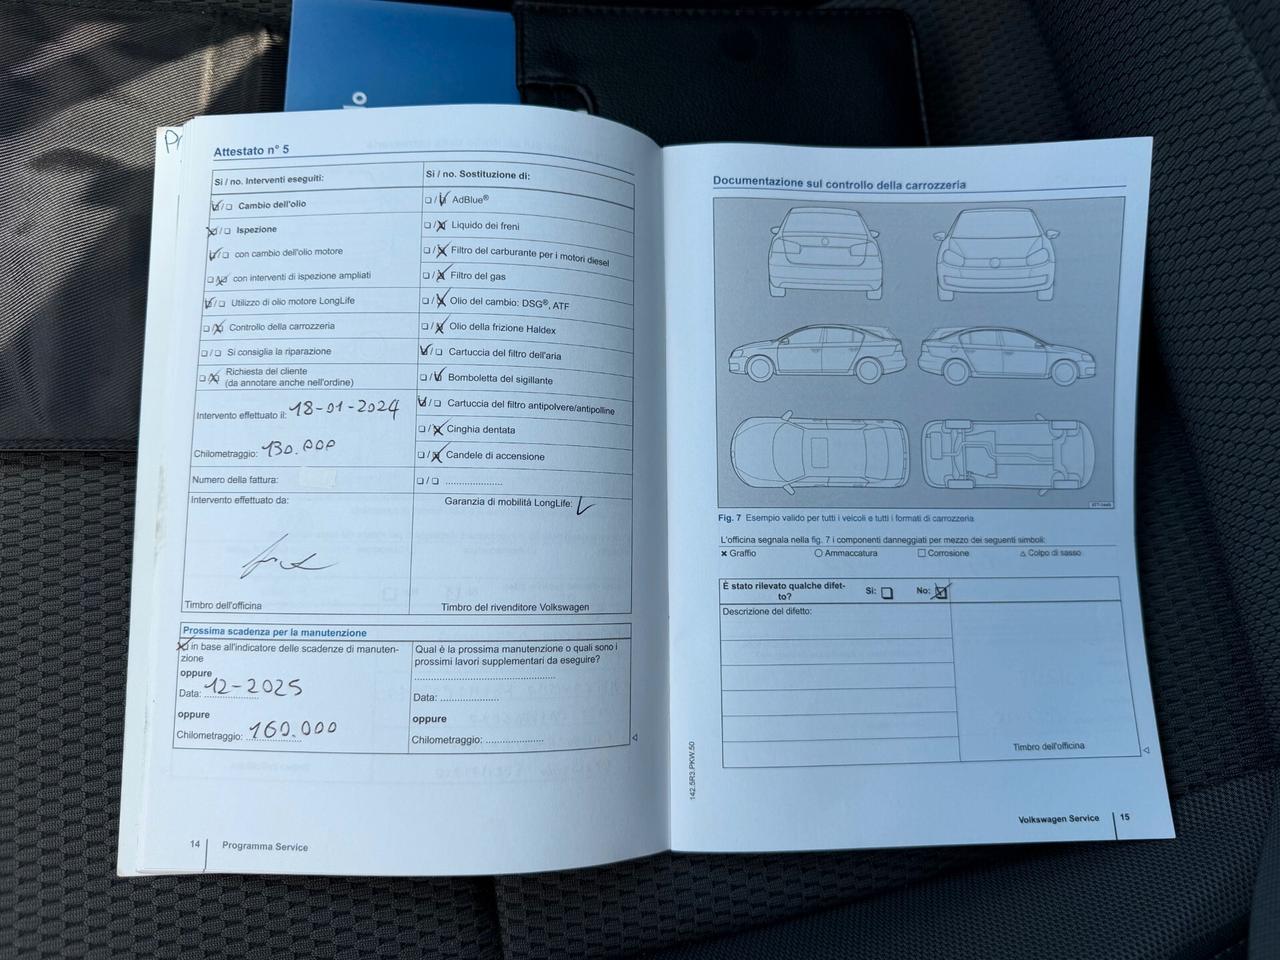 Attestato n° 5
Si / no. Interventi eseguiti:
Cambio dell'olio
Ispezione
con cambio dell'olio motore
con interventi di ispezione ampliati
Utilizzo di olio motore LongLife
Controllo della carrozzeria
Si consiglia la riparazione
Richiesta del cliente
(da annotare anche nell'ordine)
Intervento effettuato il: 18-01-2024
Chilometraggio: 130.000
Numero della fattura:
Intervento effettuato da:
Timbro dell'officina
Si / no. Sostituzione di:
AdBlue®
Liquido dei freni
Filtro del carburante per i motori diesel
Filtro del gas
Olio del cambio: DSG®, ATF
Olio della frizione Haldex
Cartuccia del filtro dell'aria
Bomboletta del sigillante
Cartuccia del filtro antipolvere/antipolline
Cinghia dentata
Candele di accensione
Garanzia di mobilità LongLife:
Timbro del rivenditore Volkswagen
Prossima scadenza per la manutenzione
in base all'indicatore delle scadenze di manuten-
zione
oppure
Data: 12-2025
oppure
Chilometraggio: 160.000
Qual è la prossima manutenzione o quali sono i
prossimi lavori supplementari da eseguire?
Data:
oppure
Chilometraggio:
14 Programma Service
Documentazione sul controllo della carrozzeria
Fig. 7 Esempio valido per tutti i veicoli e tutti i formati di carrozzeria
L'officina segnala nella fig. 7 i componenti danneggiati per mezzo dei seguenti simboli:
Graffio Ammaccatura Corrosione Colpo di sasso
È stato rilevato qualche difet-
to? Sì: No:
Descrizione del difetto:
Timbro dell'officina
142.5R3.PKW.50
Volkswagen Service 15